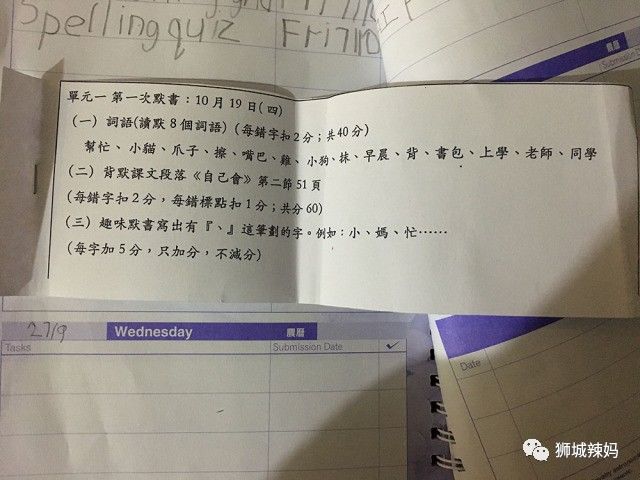 Spelling quiz Fri 7/10
農曆
Submission D
單元一 第一次默書：10月19日(四)
(一) 詞語(讀默8個詞語) (每錯字扣2分；共40分)
幫忙、小貓、爪子、擦、嘴巴、雞、小狗、抹、早晨、背、書包、上學、老師、同學
(二) 背默課文段落《自己會》第二節51頁
(每錯字扣2分，每錯標點扣1分；共分60)
(三) 趣味默書寫出有『、』這筆劃的字。例如：小、媽、忙……
(每字加5分，只加分，不減分)
27/9 Wednesday 農曆
Tasks Submission Date
Date
狮城辣妈